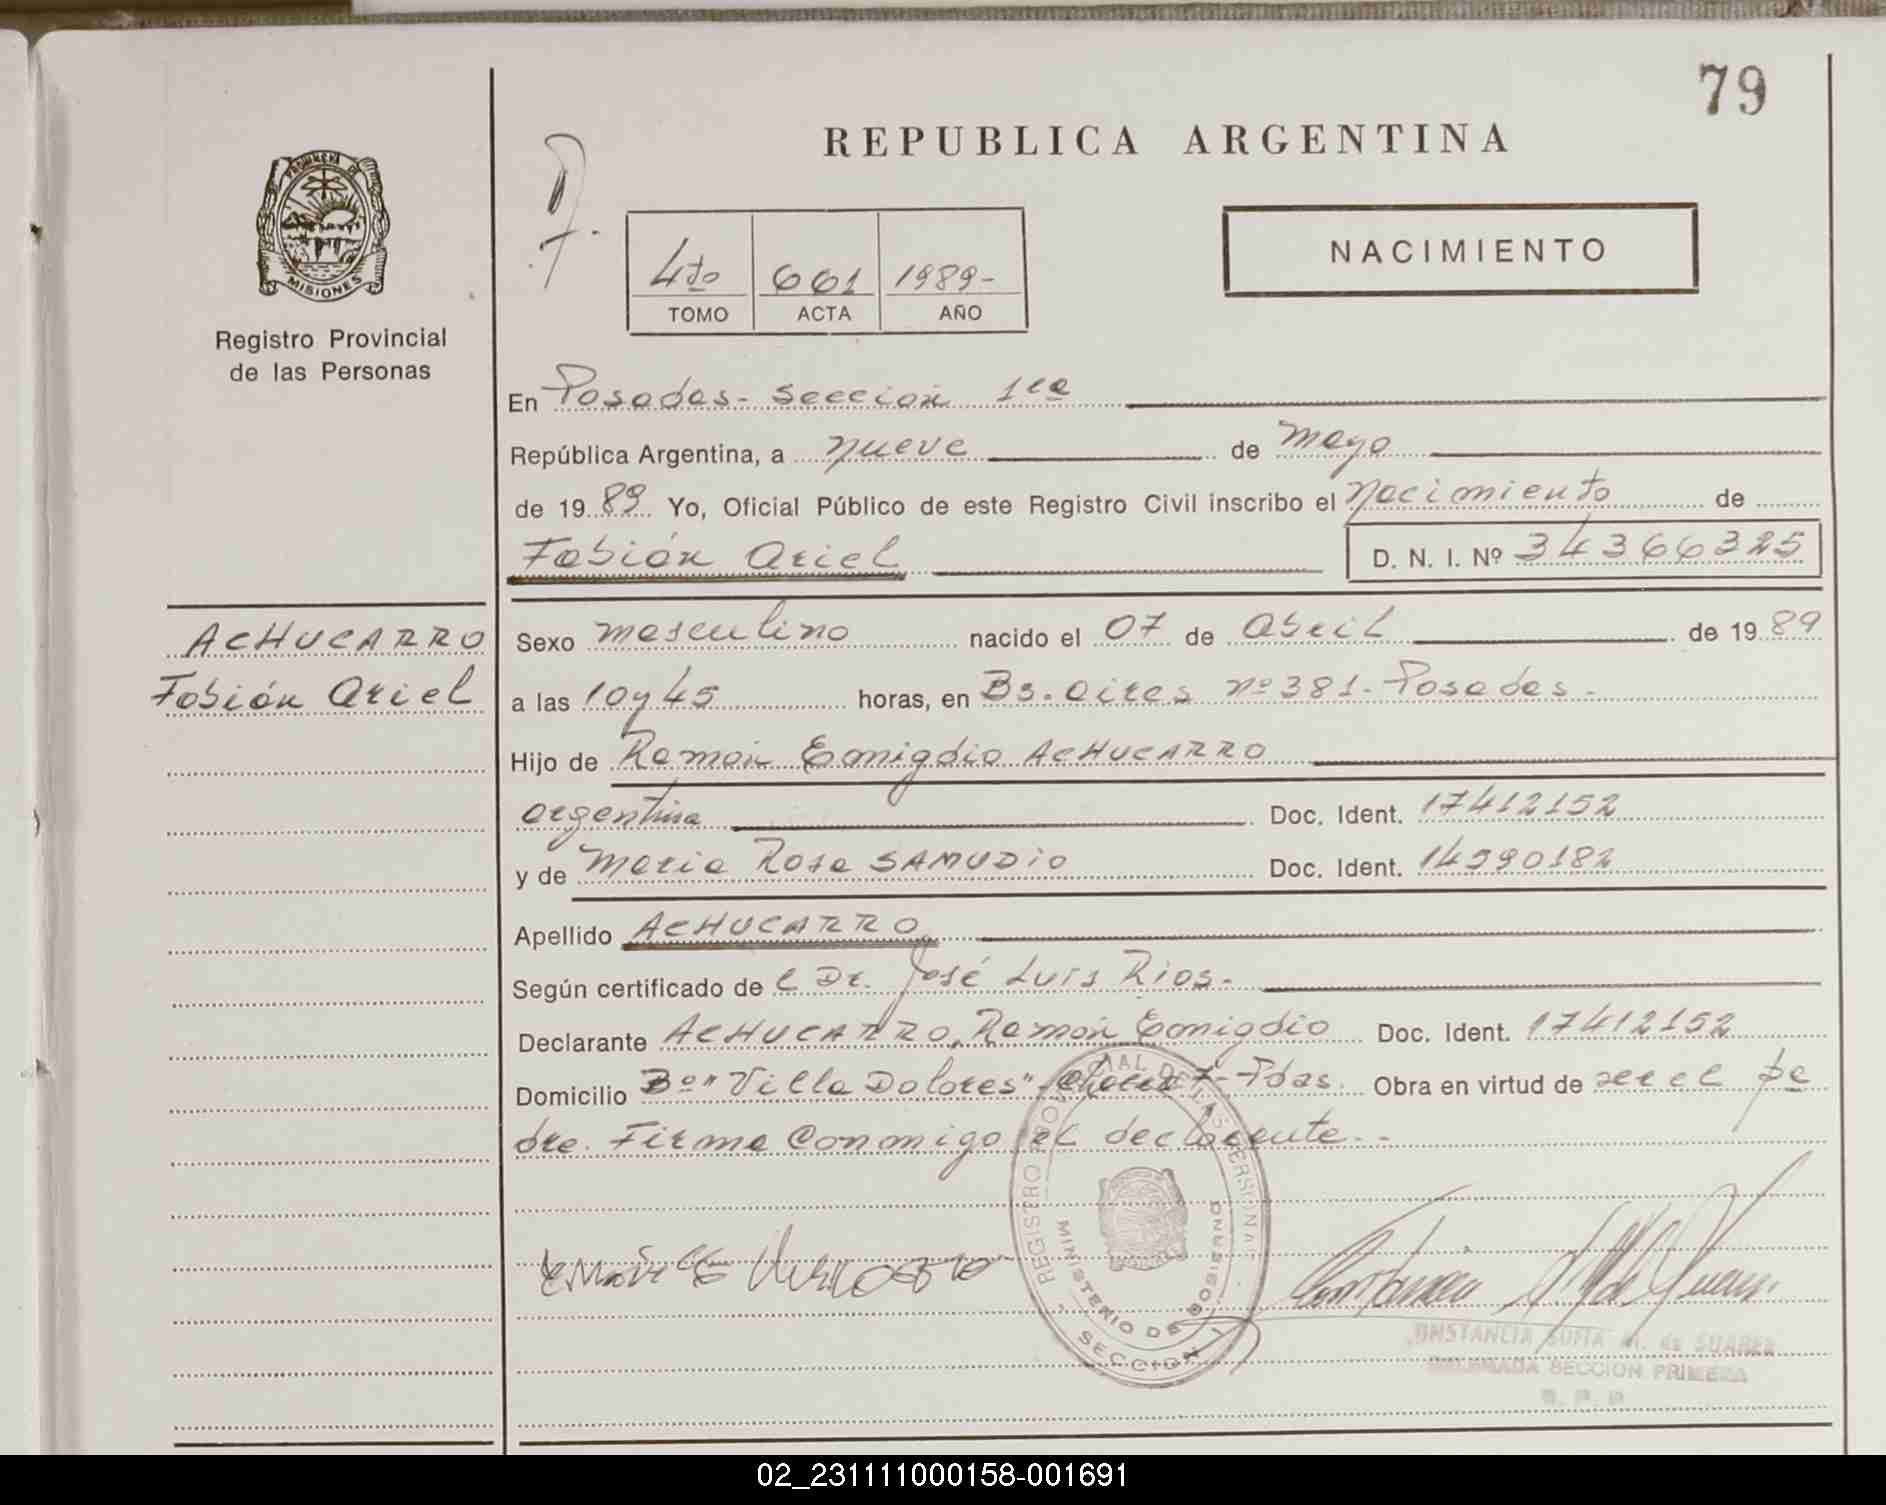 79
REPUBLICA ARGENTINA
PROVINCIA DE
MISIONES
Registro Provincial
de las Personas
4to 661 1989-
TOMO ACTA AÑO
NACIMIENTO
En Posadas- Sección 1ra
República Argentina, a nueve de mayo
de 1989 Yo, Oficial Público de este Registro Civil inscribo el nacimiento de
Fabián Ariel D. N. I. Nº 34366325
ACHUCARRO
Fabián Ariel
Sexo masculino nacido el 07 de Abril de 1989
a las 10y45 horas, en Bs. Aires nº 381- Posadas-
Hijo de Ramón Emigdio ACHUCARRO
argentina Doc. Ident. 17412152
y de Maria Rosa SAMUDIO Doc. Ident. 14590182
Apellido ACHUCARRO
Según certificado de l Dr. José Luis Rios-
Declarante ACHUCARRO, Ramón Emigdio Doc. Ident. 17412152
Domicilio Bº "Villa Dolores"- Chacra 7- Pdas. Obra en virtud de ser el pa
dre. Firma Conmigo el declarante.-
REGISTRO PROVINCIAL DE LAS PERSONAS
MINISTERIO DE GOBIERNO
SECCION 1
CONSTANCIA SOFIA M. de SUAREZ
SECCION PRIMERA
R. P. P.
02_231111000158-001691